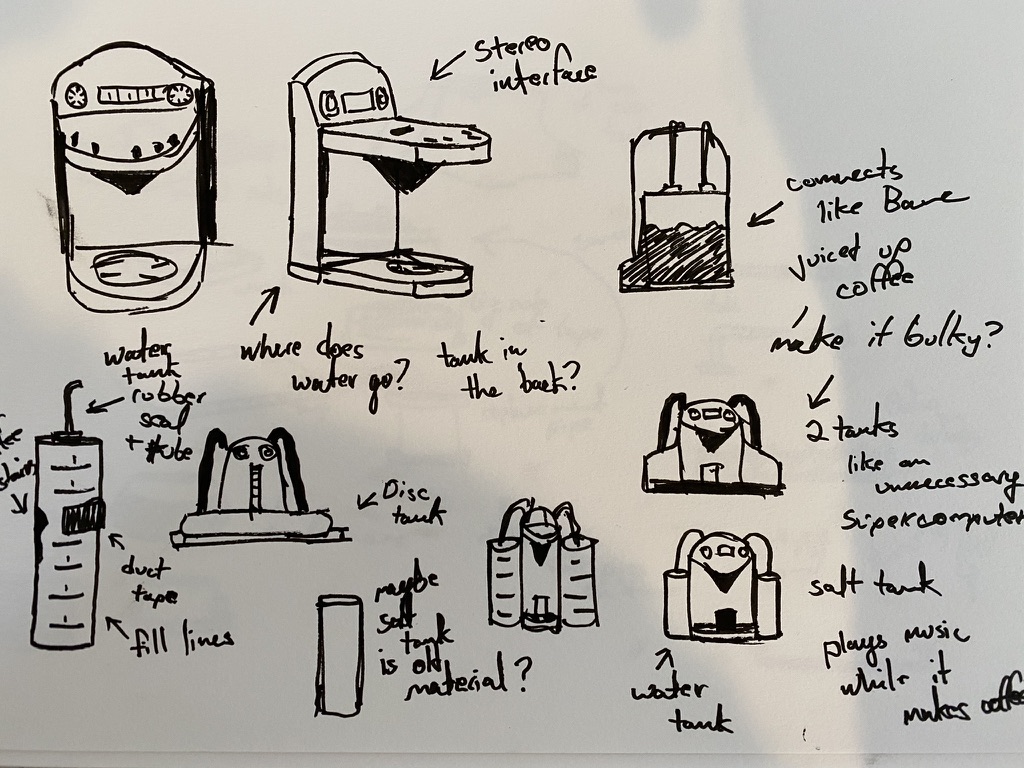 stereo
interface
connects
like Bane
juiced up
coffee
make it bulky?
where does
water go?
tank in
the back?
water
tank
rubber
seal
+ tube
stains
duct
tape
fill lines
Disc
tank
maybe
salt
tank
is old
material?
2 tanks
like an
unnecessary
supercomputer
salt tank
plays music
while it
makes coffee
water
tank